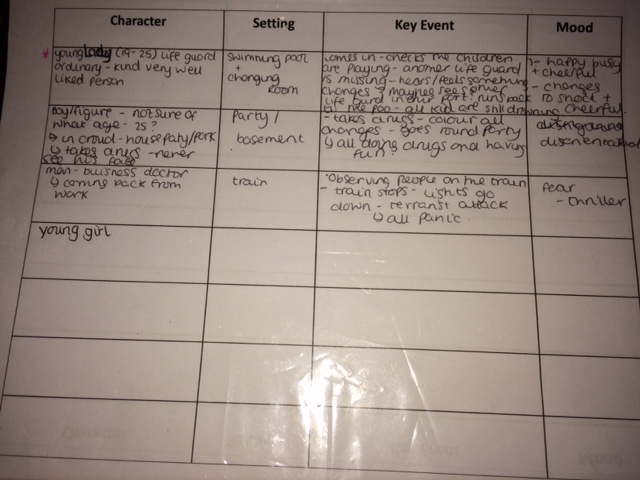 Character Setting Key Event Mood
* young lady (19-25) life guard
ordinary - kind very well
liked person
swimming pool
+
changing
room
comes in - checks the children
are playing - another life guard
is missing - hears/feels something
changes
life gurd in her runs back
all kid are still drowning
- happy busy
+ cheerful
- changes
to shock +
cheerful.
Boy/figure - not sure of
what age - 25?
↳ in croud - house paty/park
↳ takes drugs - never
see his face
Party/
basement
- takes drugs - colour all
changes - goes round party
↳ all doing drugs and having
fun?
man - buisness doctor
↳ coming back from
work
train
- Observing people on the train
- train stops - lights go
down - terrorist attack
↳ all panic.
fear
- thriller
young girl